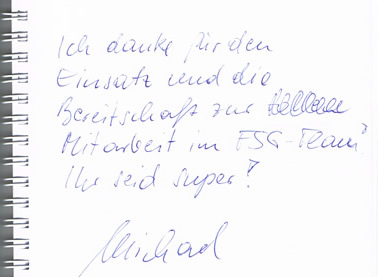 Ich danke für den
Einsatz und die
Bereitschaft zur
Mitarbeit im FSG-Team!
Ihr seid super!
Michael